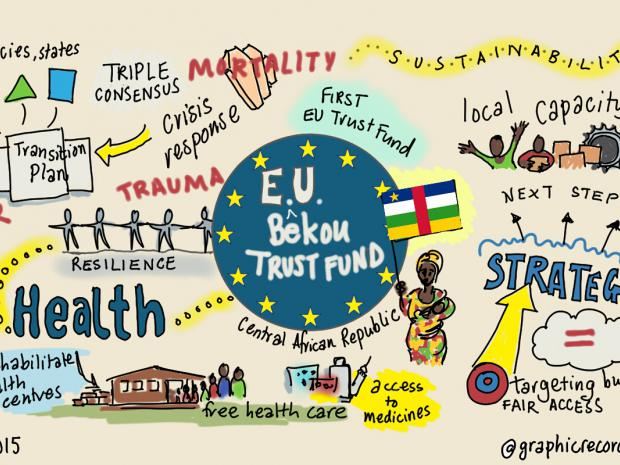 cies, states
TRIPLE
CONSENSUS
MORTALITY
SUSTAINABILIT
crisis
response
FIRST
EU Trust Fund
local capacity
Transition
Plan
TRAUMA
R
E.U.
Bêkou
TRUST FUND
NEXT STEP
RESILIENCE
STRATEG
Health
Central African Republic
habilitate
alth
centives
free health care
access
to
medicines
=
targeting bu
FAIR ACCESS
015
@graphicrecor